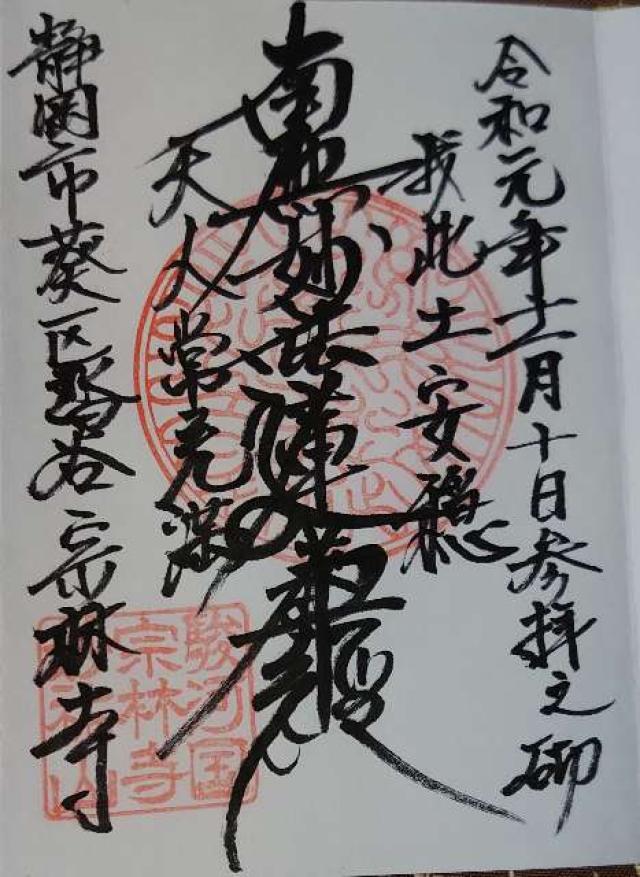 令和元年十一月十日参拝之砌
我此土安穏
南無妙法蓮華経
天人常充満
静岡市葵区沓谷宗林寺
駿河国
宗林寺